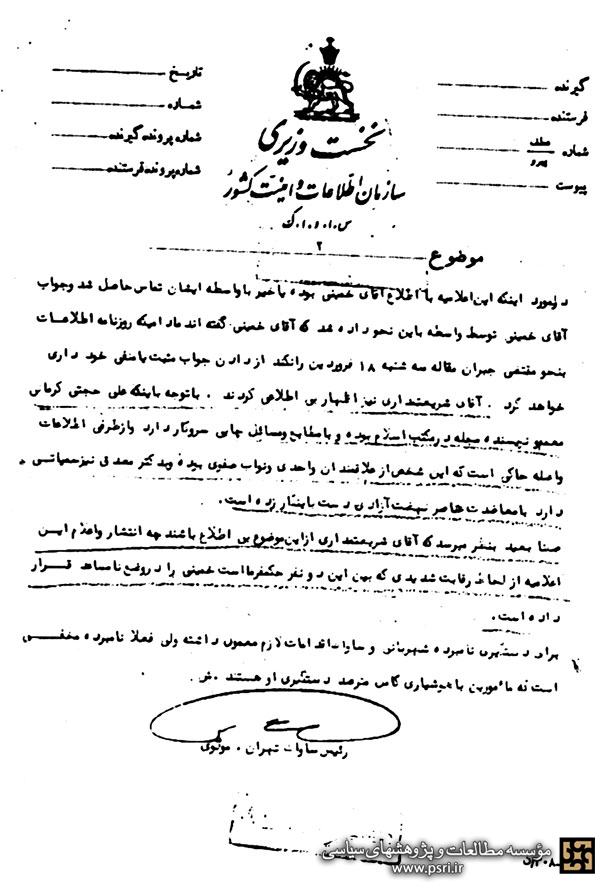 گیرنده
فرستنده
شماره
پیوست
تاریخ
شماره
شماره پرونده گیرنده
شماره پرونده فرستنده
نخست وزیری
سازمان اطلاعات و امنیت کشور
س.ا.و.ا.ک
۲
موضوع
درمورد اینکه این اعلامیه با اطلاع آقای خمینی بوده یا خیر با واسطه ایشان تماس حاصل شد و جواب
آقای خمینی توسط واسطه باین نحو داده شد که آقای خمینی گفته اند مادامیکه روزنامه اطلاعات
بنحو مقتضی جبران مقاله سه شنبه ۱۸ فروردین را نکند از دادن جواب مثبت یا منفی خود داری
خواهد کرد . آقای شریعتمداری نیز اظهار بی اطلاعی کردند . با توجه باینکه علی حجتی کرمانی
معمم نویسنده مجله درمکتب اسلام بوده و با مطابع و مسائل چاپی سروکار دارد و ازطرفی اطلاعات
واصله حاکی است که این شخص از علاقمندان واحدی و نواب صفوی بوده و به دکتر مصدق نیز سمپاتی
دارد با معاضدت عناصر نهضت آزادی دست باینکار زده است .
ضمنا بعید بنظر میرسد که آقای شریعتمداری از این موضوع بی اطلاع باشند چه انتشار و اعلام این
اعلامیه از لحاظ رقابت شدیدی که بین این دو نفر حکمفرما است خمینی را در وضع نامساعد قرار
داده است .
برای دستگیری نامبرده شهربانی و ساواک اقدامات لازم معمول داشته ولی فعلا نامبرده مخفی
است که مامورین با هوشیاری کامل مترصد دستگیری او هستند . ش
رئیس ساواک تهران . مولوی
مؤسسه مطالعات و پژوهشهای سیاسی
www.psri.ir